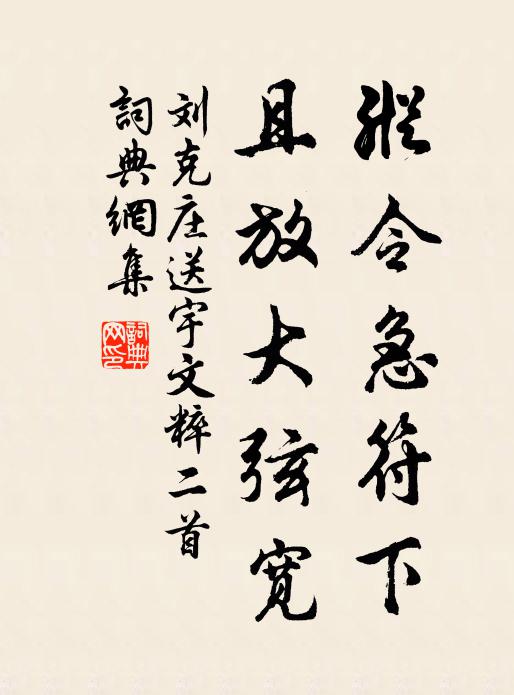 縱令急符下
且放大弦寬
刘克庄送宇文粹二首
詞典網集
詞典网印